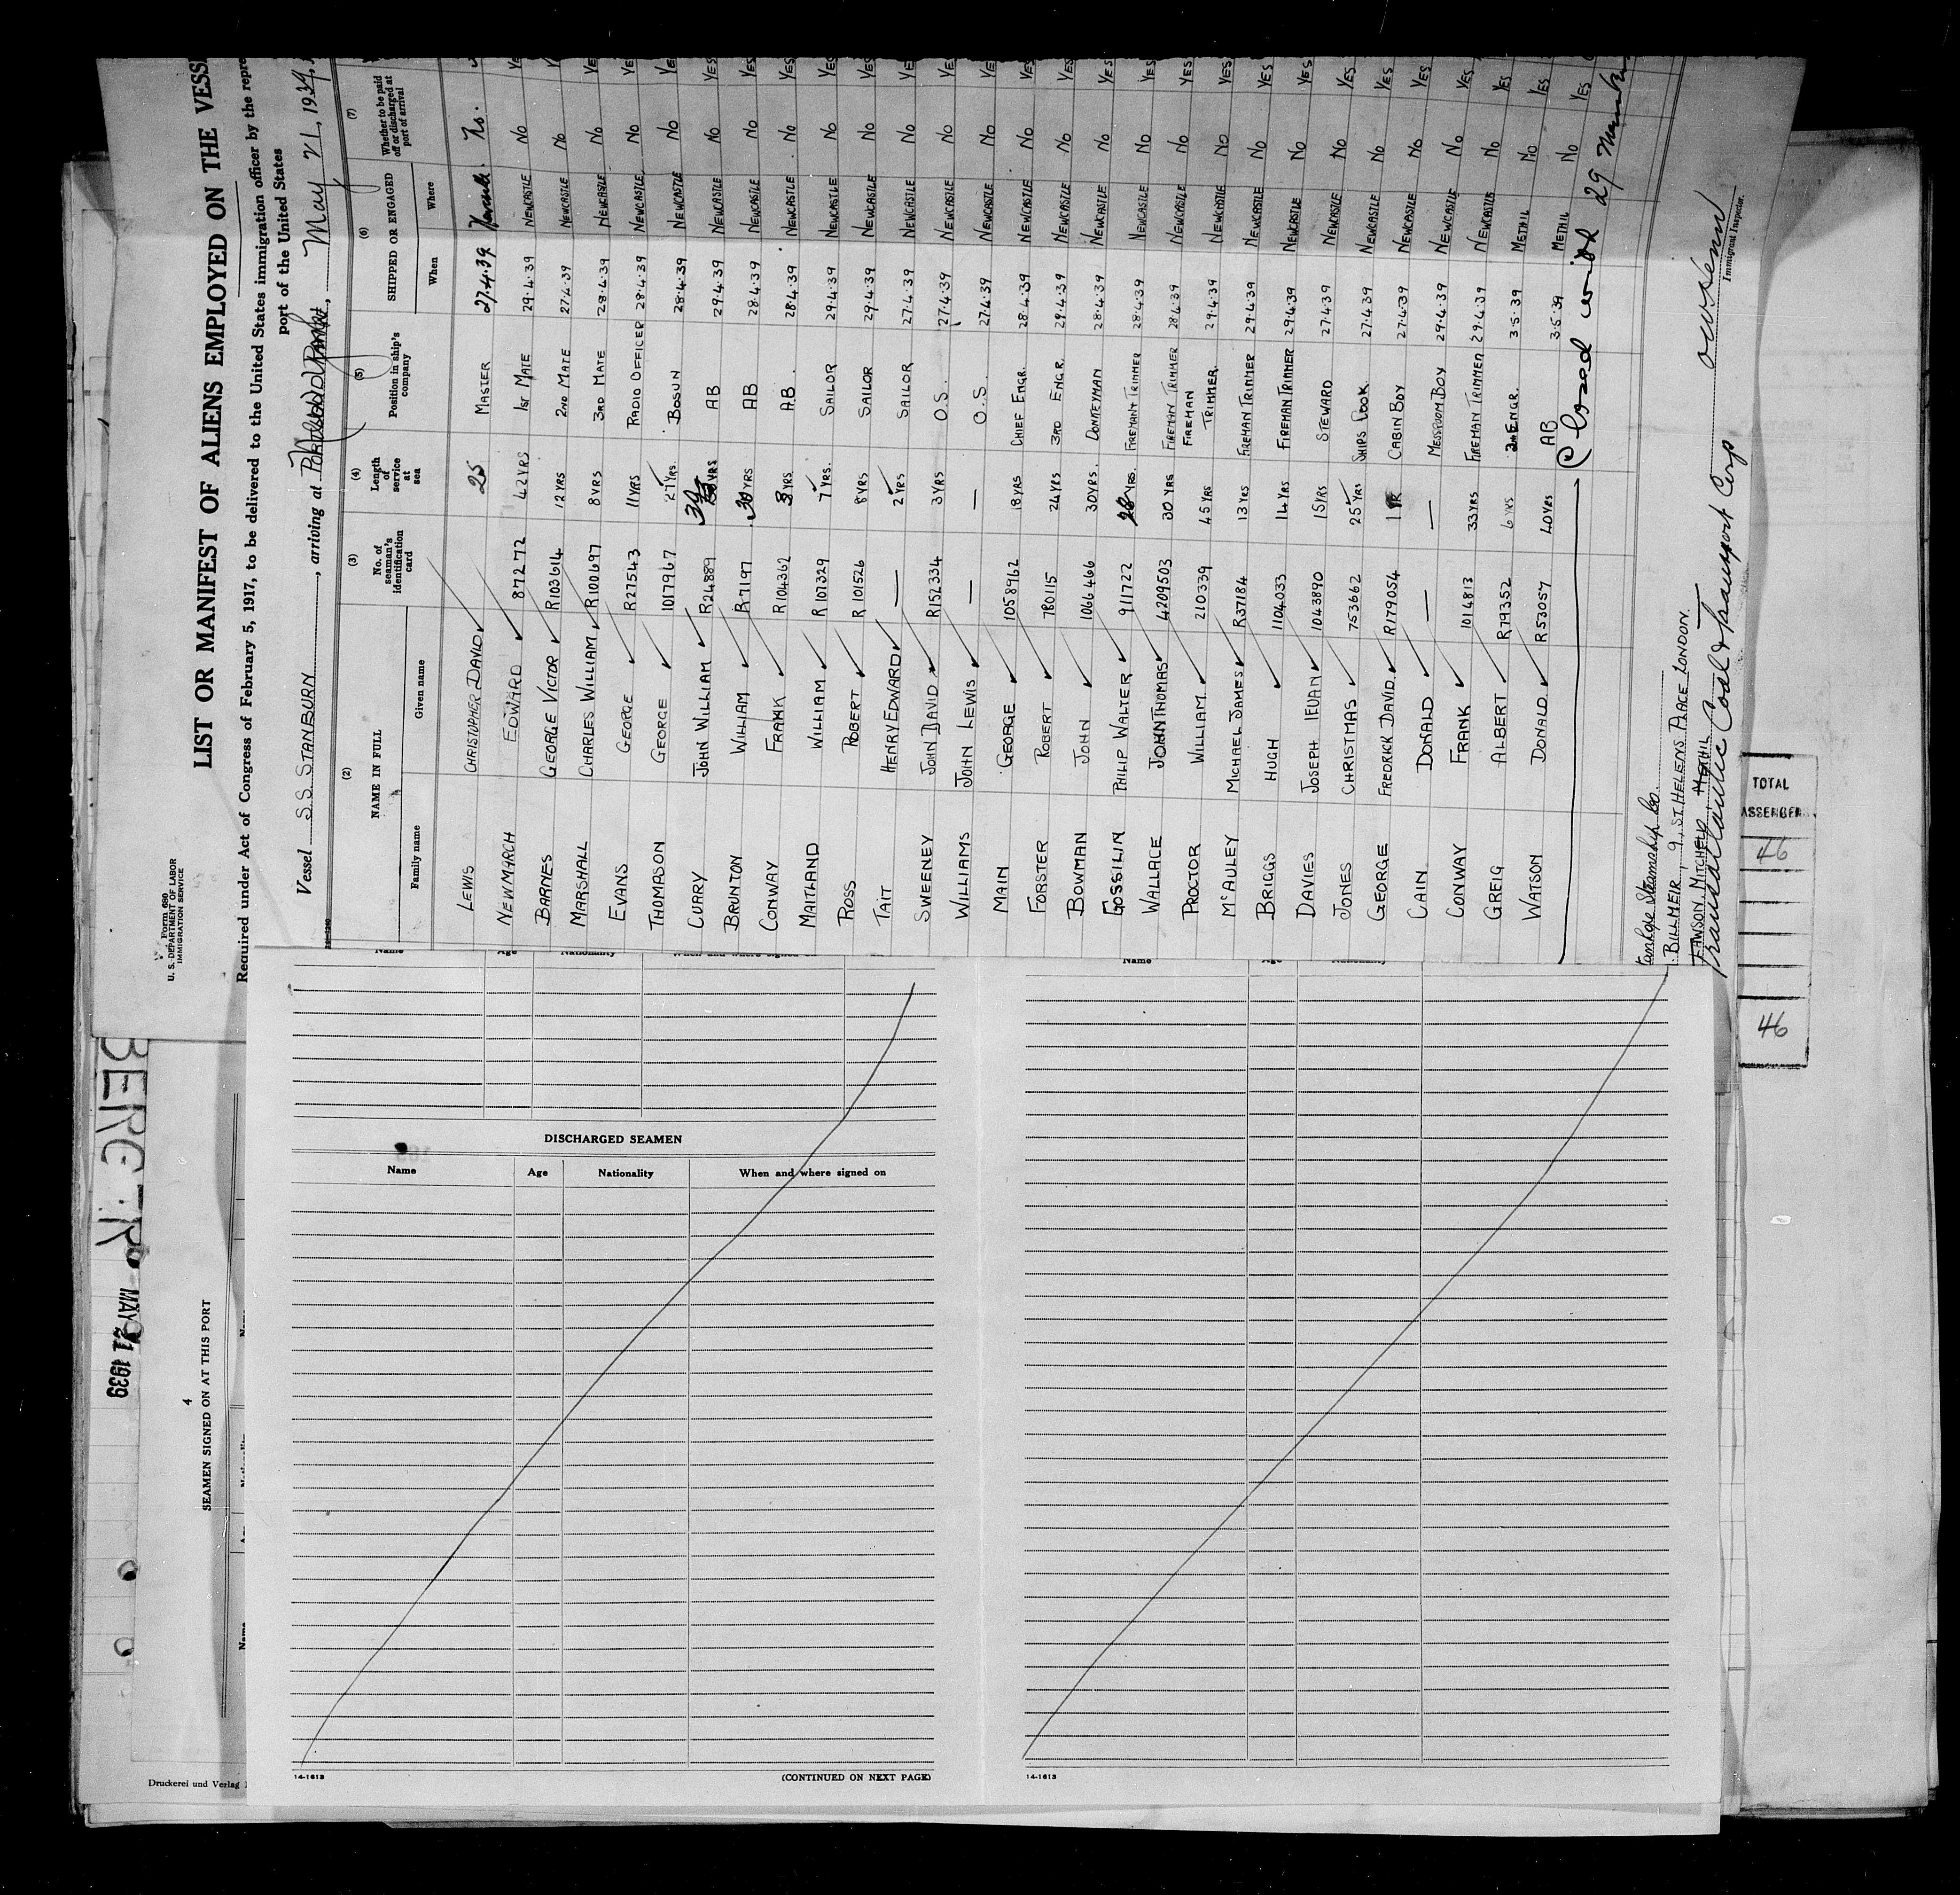 Form 680
U. S. DEPARTMENT OF LABOR
IMMIGRATION SERVICE
LIST OR MANIFEST OF ALIENS EMPLOYED ON THE VESS
Required under Act of Congress of February 5, 1917, to be delivered to the United States immigration officer by the repre
port of the United States
Vessel S.S. STANBURN, arriving at May 21, 1939,
(2) (3) (4) (5) (6) (7)
NAME IN FULL No. of seaman's identification card Length of service at sea Position in ship's company SHIPPED OR ENGAGED Whether to be paid off or discharged at port of arrival
Family name Given name When Where
LEWIS CHRISTOPHER DAVID 25 MASTER 27.4.39 No.
NEWMARCH EDWARD 87272 42 YRS 1ST MATE 29.4.39 NEWCASTLE No YE
BARNES GEORGE VICTOR R103614 12 YRS 2ND MATE 27.4.39 NEWCASTLE No Y
MARSHALL CHARLES WILLIAM R100697 8 YRS 3RD MATE 28.4.39 NEWCASTLE No YE
EVANS GEORGE R27543 11 YRS RADIO OFFICER 28.4.39 NEWCASTLE No YE
THOMPSON GEORGE 1017967 27 YRS. BOSUN 28.4.39 NEWCASTLE No YE
CURRY JOHN WILLIAM R24889 YRS AB 29.4.39 NEWCASTLE No YES
BRUNTON WILLIAM R7197 30 YRS AB 28.4.39 NEWCASTLE No YES
CONWAY FRANK R104362 3 YRS A.B. 28.4.39 NEWCASTLE No YES
MAITLAND WILLIAM R107329 7 YRS. SAILOR 29.4.39 NEWCASTLE No YES
ROSS ROBERT R101526 8 YRS SAILOR 29.4.39 NEWCASTLE No YES
TAIT HENRY EDWARD — 2 YRS SAILOR 27.4.39 NEWCASTLE No YES
SWEENEY JOHN DAVID R152334 3 YRS O.S. 27.4.39 NEWCASTLE No YES
WILLIAMS JOHN LEWIS — — O.S. 27.4.39 NEWCASTLE No YES
MAIN GEORGE 1058962 18 YRS CHIEF ENGR. 28.4.39 NEWCASTLE No YES
FORSTER ROBERT 780115 24 YRS 3RD ENGR. 29.4.39 NEWCASTLE No YES
BOWMAN JOHN 1066466 30 YRS. DONKEYMAN 28.4.39 NEWCASTLE No YES
GOSSILIN PHILIP WALTER 911722 28 YRS. FIREMAN TRIMMER 28.4.39 NEWCASTLE No YES
WALLACE JOHN THOMAS 4209503 30 YRS FIREMAN TRIMMER 28.4.39 NEWCASTLE No YES
PROCTOR WILLIAM 210339 45 YRS FIREMAN TRIMMER. 29.4.39 NEWCASTLE No YES
McAULEY MICHAEL JAMES R37184 13 YRS FIREMAN TRIMMER 29.4.39 NEWCASTLE No YES
BRIGGS HUGH 1104033 14 YRS FIREMAN TRIMMER 29.4.39 NEWCASTLE No YES
DAVIES JOSEPH IEUAN 1043890 15 YRS STEWARD 27.4.39 NEWCASTLE No YES
JONES CHRISTMAS 753662 25 YRS SHIPS COOK 27.4.39 NEWCASTLE No YES
GEORGE FREDRICK DAVID. R179054 1 YR CABIN BOY 27.4.39 NEWCASTLE No YES
CAIN DONALD — — MESSROOM BOY 29.4.39 NEWCASTLE No YES
CONWAY FRANK 1014813 33 YRS FIREMAN TRIMMER 29.4.39 NEWCASTLE No YES
GREIG ALBERT R79352 6 YRS 2nd ENGR. 3.5.39 METHIL No YES
WATSON DONALD R53057 40 YRS AB 3.5.39 METHIL No YES
Closed with 29
Steamship Co.
BILLMEIR, 9, ST. HELENS PLACE LONDON.
LAWSON MITCHELL METHIL
Transatlantic Coal & Transport Corp
Immigrant Inspector.
TOTAL
PASSENGERS
46
46
BERG
MAY 21 1939
4
SEAMEN SIGNED ON AT THIS PORT
Name
Druckerei und Verlag
Name Age Nationality When and where signed on
DISCHARGED SEAMEN
Name Age Nationality When and where signed on
14-1613
(CONTINUED ON NEXT PAGE)
Name Age Nationality
14-1613